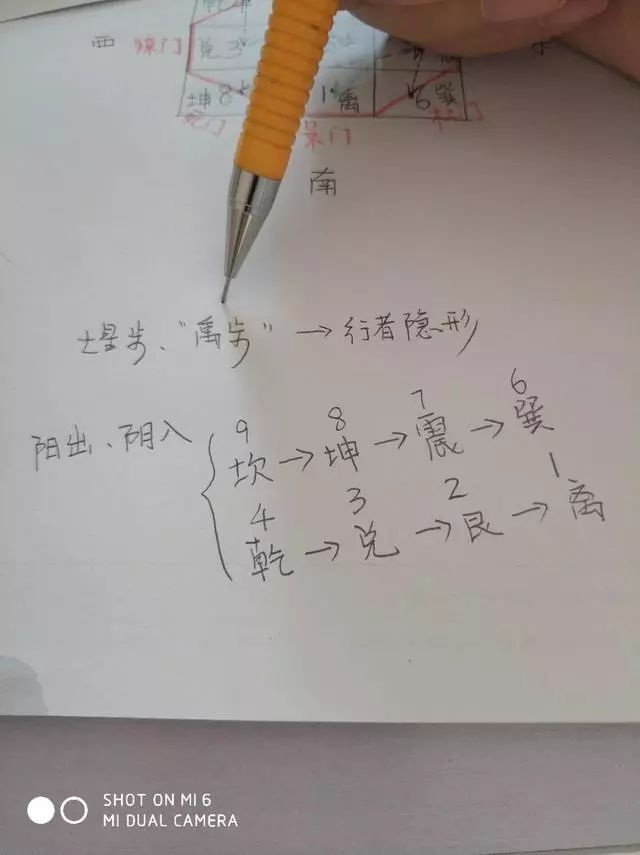 西 惊门 兑3
坤8 1离 6巽
景门
南
土星步、"禹步"→行者隐形
阳出、阴入
9 8 7 6
坎→坤→震→巽
4 3 2 1
乾→兑→艮→离
SHOT ON MI 6
MI DUAL CAMERA